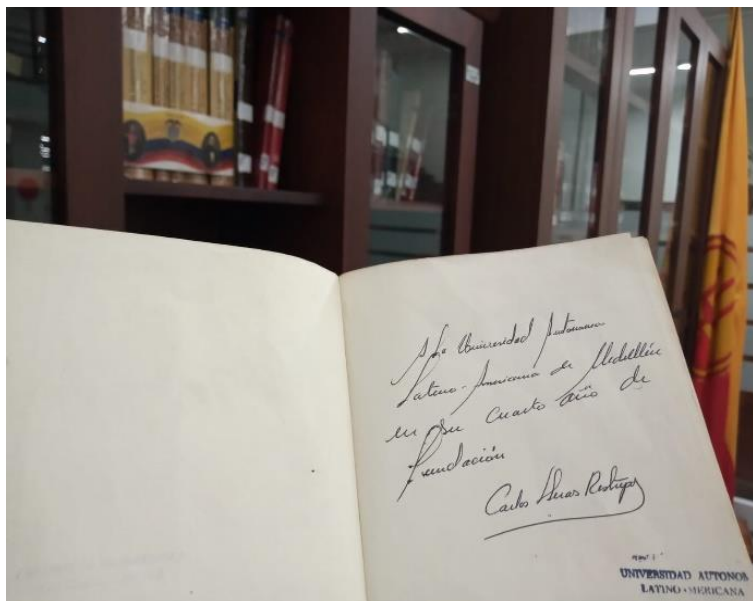 A la Universidad Autónoma
Latino-Americana de Medellín
en su cuarto año de
fundación
Carlos Lleras Restrepo
UNIVERSIDAD AUTONOM
LATINO-MERICANA